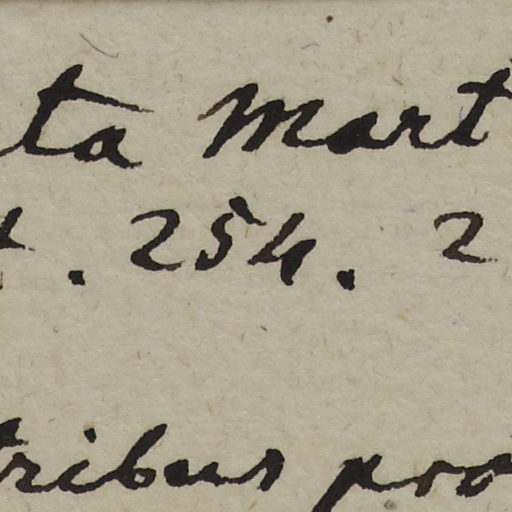 ta Mart
t. 254. 2
tribus pro